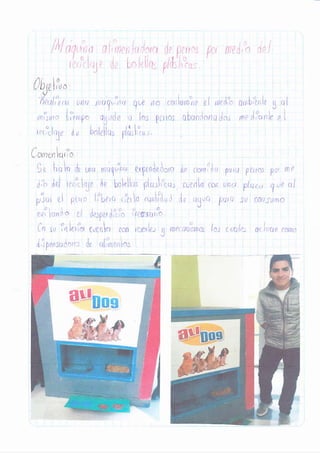 Maquina alimentadora de perros por medio del
reciclaje de botellas plásticas.
Objetivo:
Realizar una maquina que no contamine el medio ambiente y al
mismo tiempo ayude a los perros abandonados mediante el
reciclaje de botellas plasticas.
Comentario
Se trata de una maquina expendedora de comida para perros por me
dio del reciclaje de botellas plasticas, cuenta con una placa que al
pisar el perro libera cierta cantidad de agua para su consumo
evitando el desperdicio
En su interior cuenta con y mecanismos los cuales actuan como
dispensadores de alimentos.
ALI
Dog
ALI
Dog